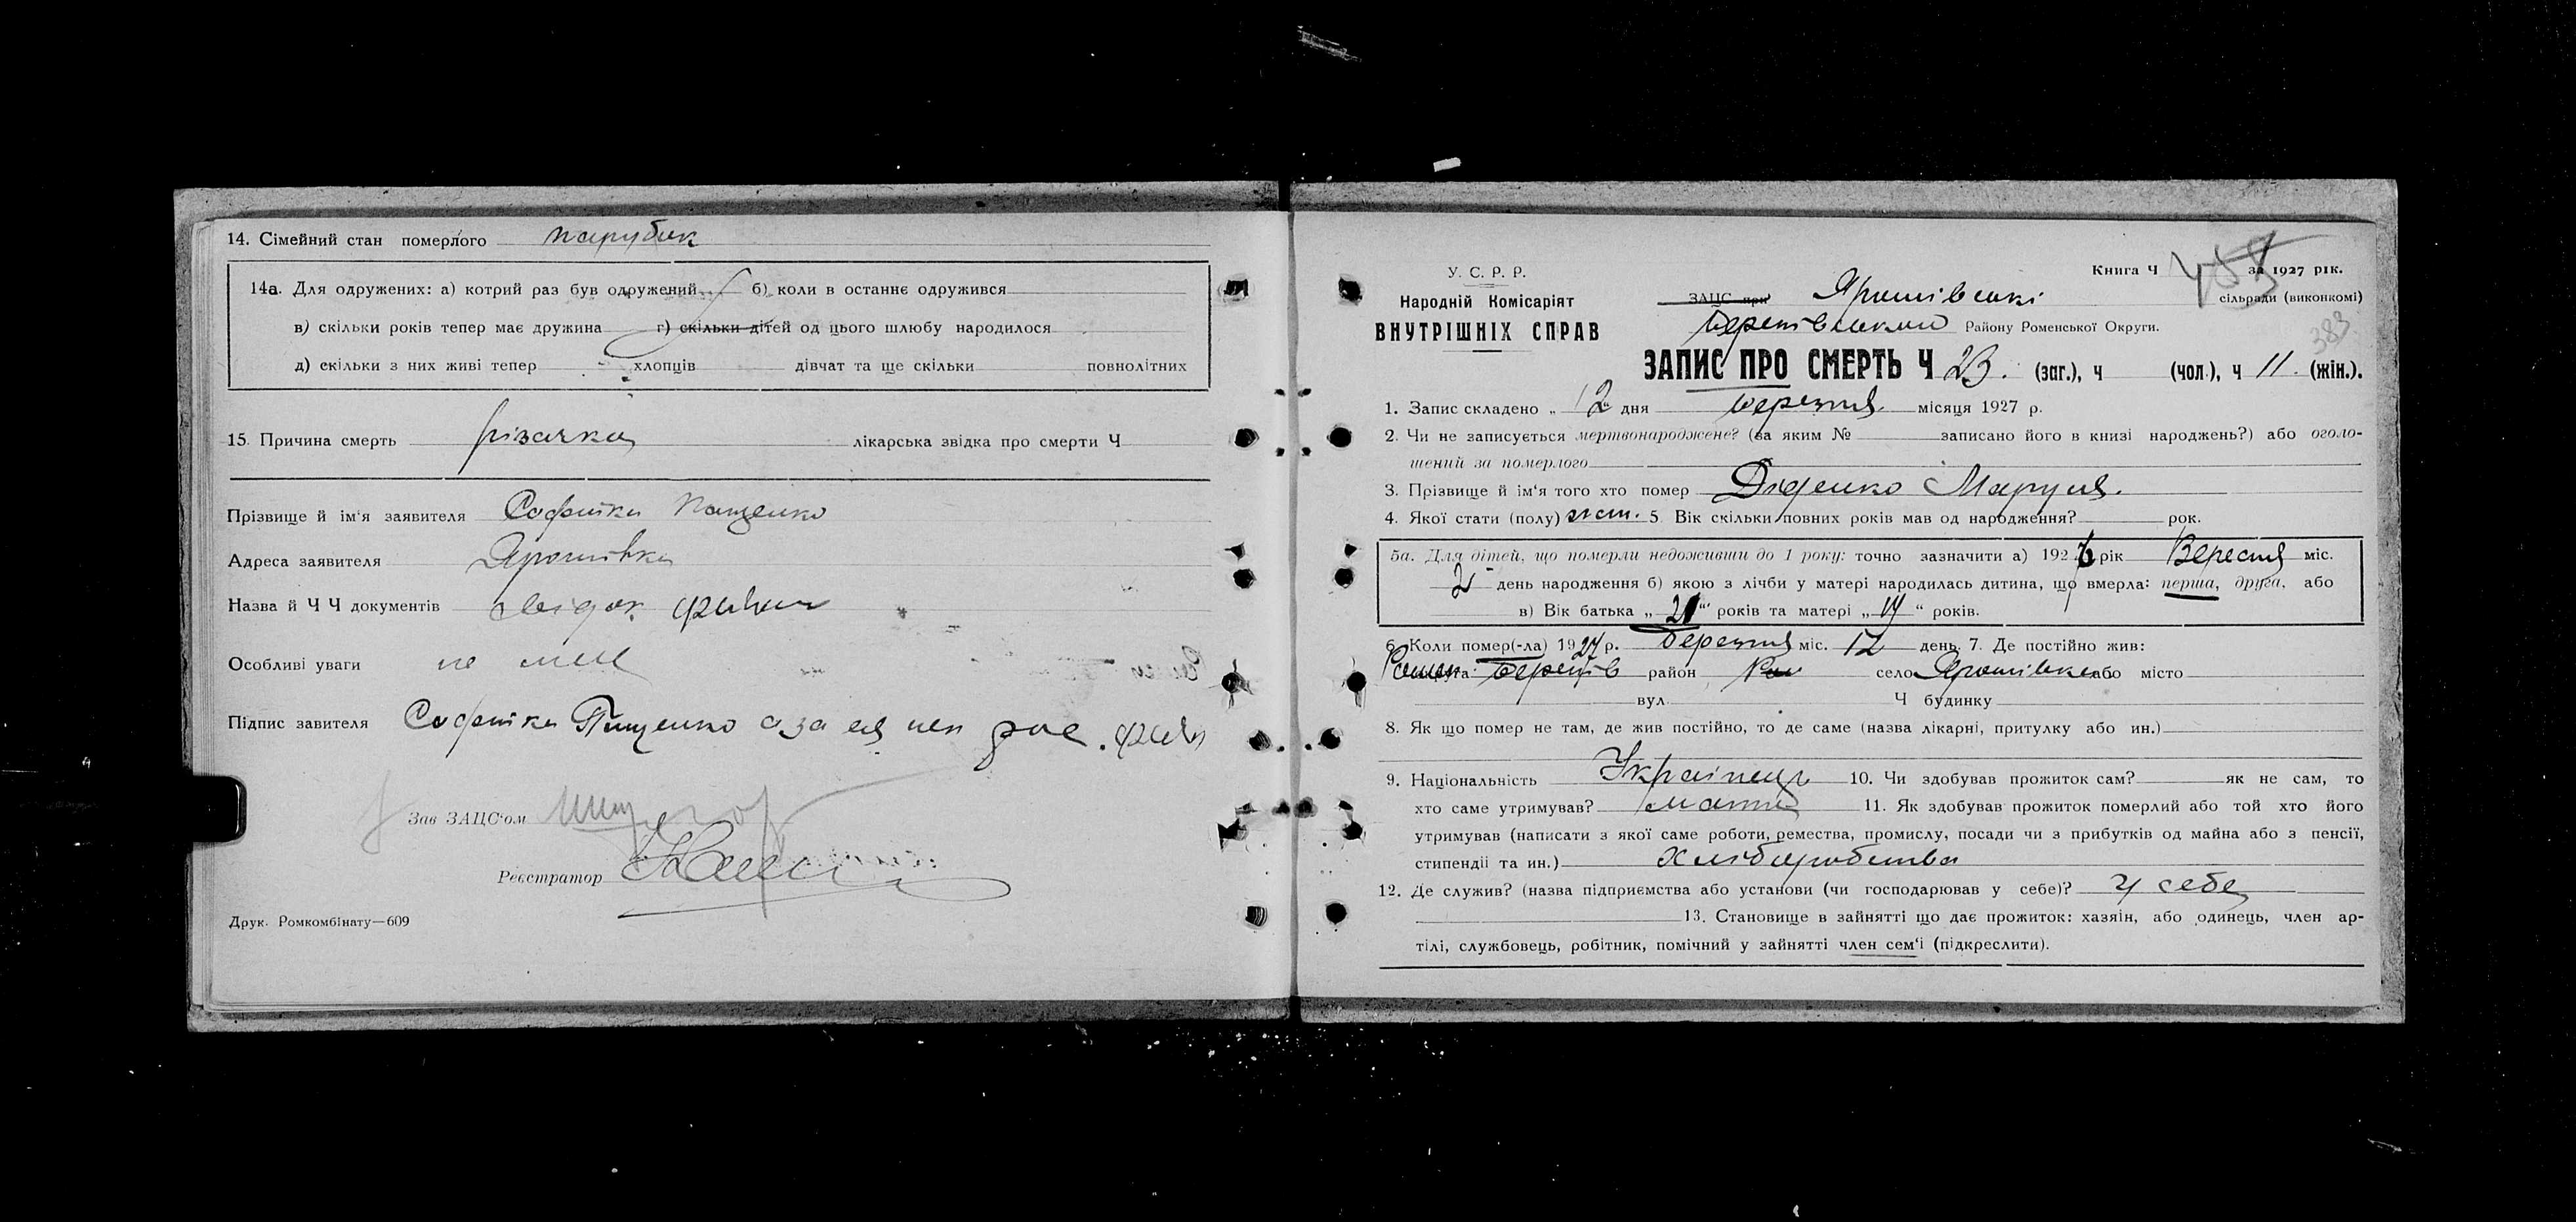 14. Сімейний стан померлого парубик
14а. Для одружених: а) котрий раз був одружений б) коли в останнє одружився
в) скільки років тепер має дружина г) скільки дітей од цього шлюбу народилося
д) скільки з них живі тепер хлопців дівчат та ще скільки повнолітних
15. Причина смерть різачка лікарська звідка про смерти Ч
Прізвище й ім'я заявителя Пащенко
Адреса заявителя Ярошівка
Назва й Ч Ч документів
Особливі уваги не має
Підпис завителя Пащенко а за
Зав ЗАЦС'ом
Реєстратор
Друк. Ромкомбінату—609
Книга Ч за 1927 рік.
У. С. Р. Р.
Народній Комісаріят
ВНУТРІШНІХ СПРАВ
ЗАЦС при Ярошівські сільради (виконкомі)
Району Роменської Округи.
383
ЗАПИС ПРО СМЕРТЬ Ч 23. (заг.), ч (чол.), ч 11. (жін.).
1. Запис складено „ 12 " дня березня місяця 1927 р.
2. Чи не записується мертвонароджене? (за яким № записано його в книзі народжень?) або оголо-
шений за померлого
3. Прізвище й ім'я того хто помер Діденко Маруся.
4. Якої стати (полу) жін. 5 Вік скільки повних років мав од народження? рок.
5а. Для дітей, що померли недоживши до 1 року: точно зазначити а) 1926 рік Вересня міс.
2 день народження б) якою з лічби у матері народилась дитина, що вмерла: перша, друга, або
в) Вік батька „ 21 " років та матері „ 19 " років.
6. Коли помер(-ла) 1927 р. березня міс. 12 день. 7. Де постійно жив:
Ромен округа район село Ярошівка або місто
вул. Ч будинку
8. Як що помер не там, де жив постійно, то де саме (назва лікарні, притулку або ин.)
9. Національність Українець 10. Чи здобував прожиток сам? як не сам, то
хто саме утримував? мати 11. Як здобував прожиток померлий або той хто його
утримував (написати з якої саме роботи, ремества, промислу, посади чи з прибутків од майна або з пенсії,
стипендії та ин.) Хліборобства
12. Де служив? (назва підприємства або установи (чи господарював у себе)? у себе
13. Становище в зайнятті що дає прожиток: хазяїн, або одинець, член ар-
тілі, службовець, робітник, помічний у зайнятті член сем'ї (підкреслити).